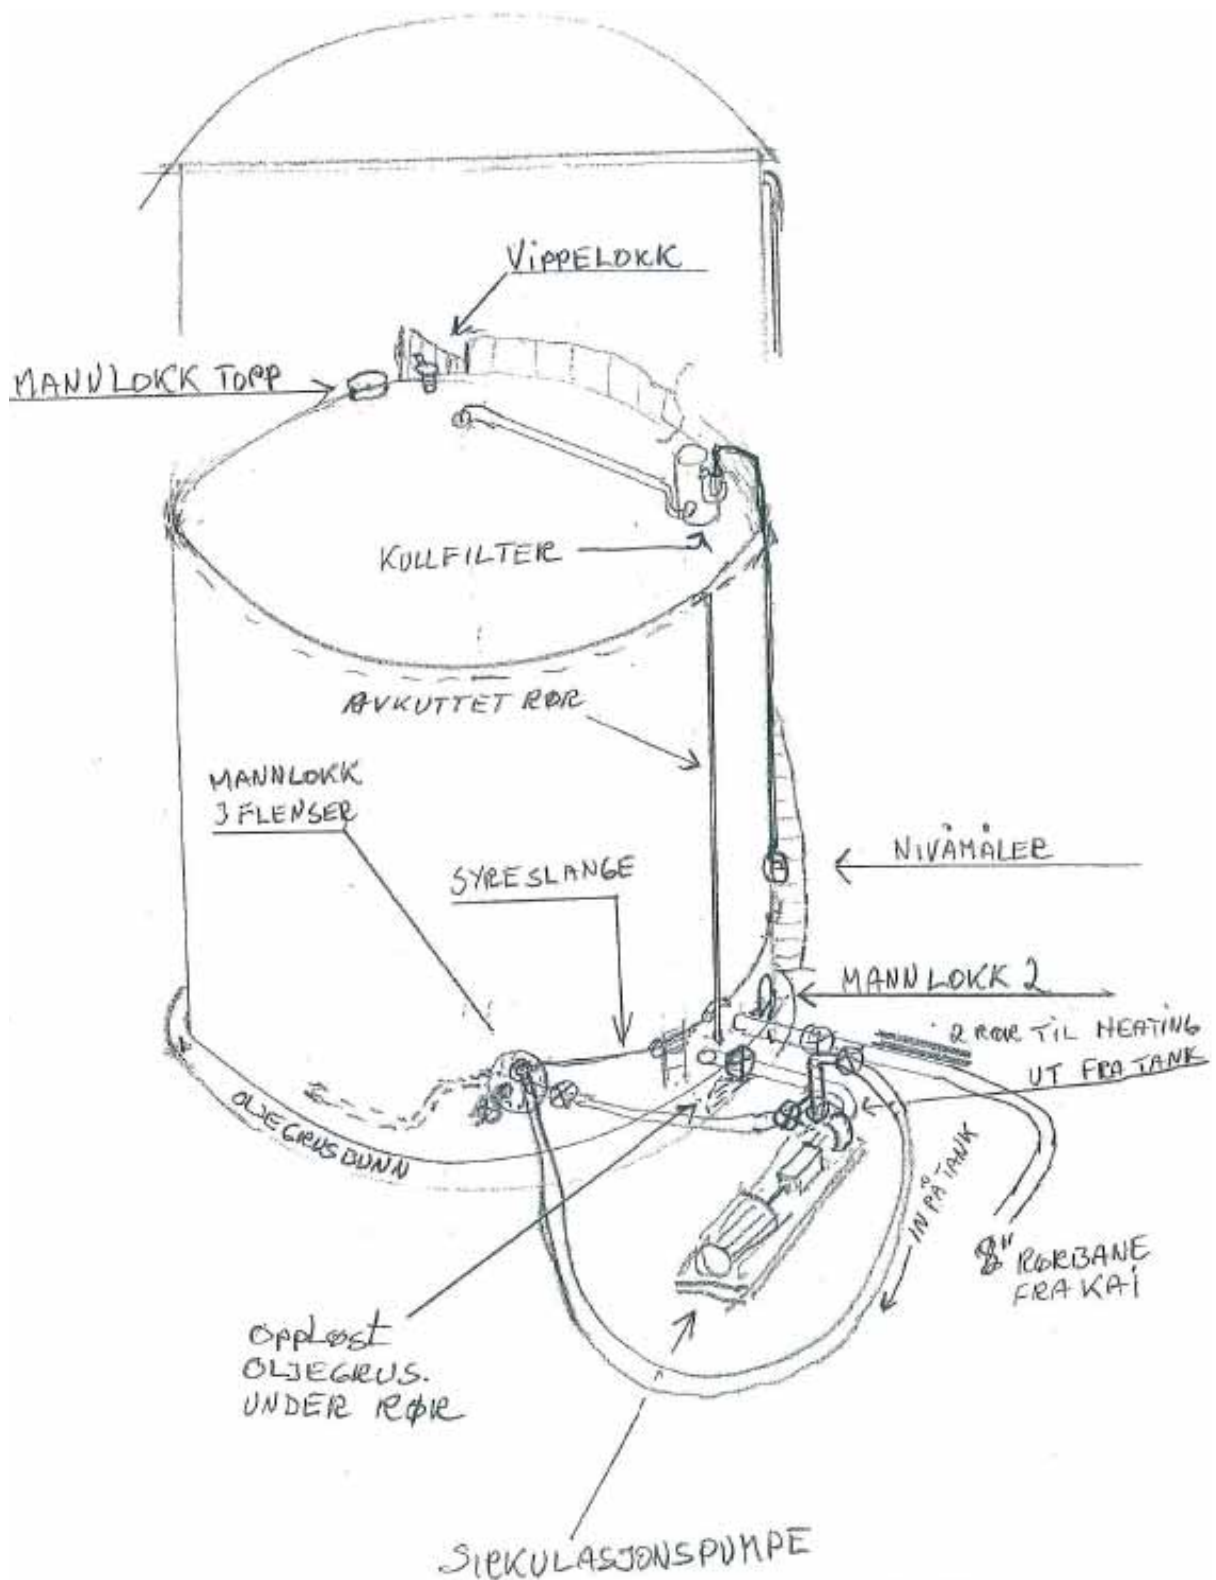 VIPPELOKK
MANNLOKK TOPP
KULLFILTER
AVKUTTET RØR
MANNLOKK
3 FLENSER
SYRESLANGE
NIVÅMÅLER
MANNLOKK 2
2 RØR TIL HEATING
UT FRA TANK
OLJEGRUSBUNN
INPÅTANK
8" RØRBANE
FRA KAI
OPPLØST
OLJEGRUS.
UNDER RØR
SIRKULASJONSPUMPE